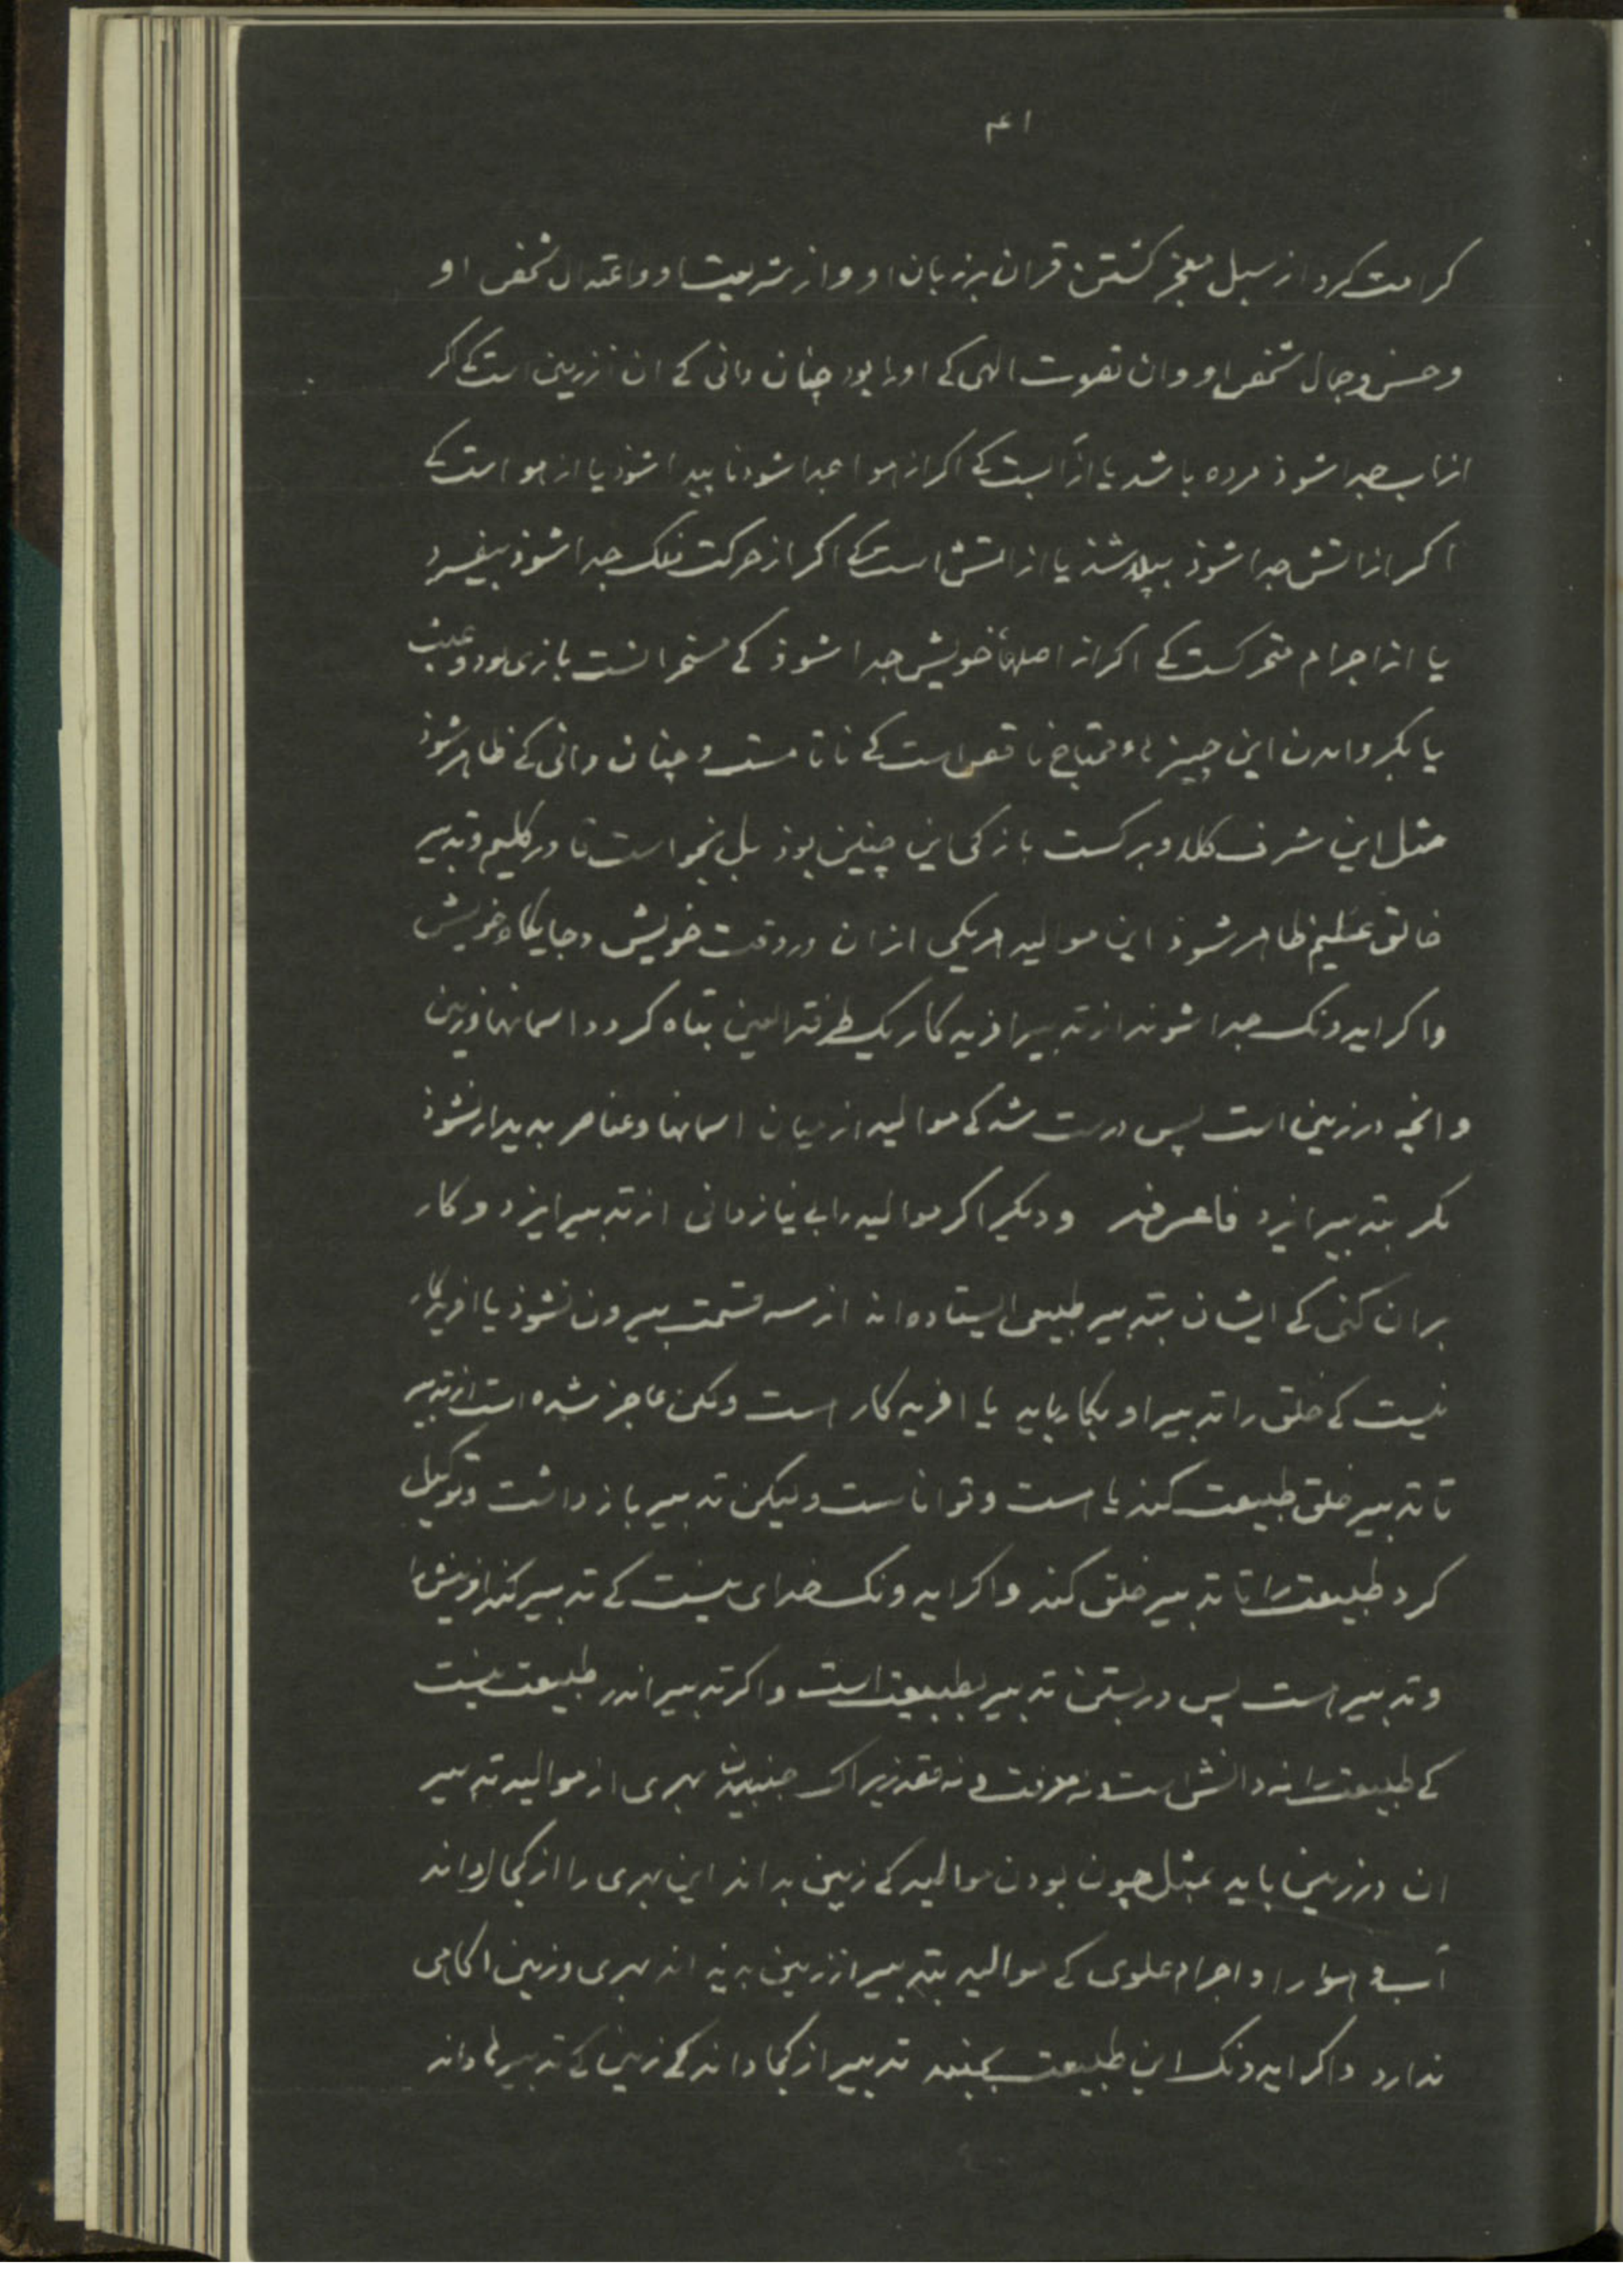 ۴۱
کرامت کرد از سبل معجز کشتن قران بر زبان او و از شریعت او و اعتدال شخص او
و حسن و جمال شخص او و ان تقوت الهی کے اورا بود چنان دانی کے ان از زمین است کے اکر
از اب جدا شوذ مرده باشد یا از آبست کے اکر از هوا جدا شود نا پیدا شوذ یا از هوا است کے
اکر از اتش جدا شوذ یا از اتش است کے اکر از حرکت فلک جدا شوذ بیفسرد
یا از اجرام متحرکست کے اکر از اصلهاء خویش جدا شوذ کے مسخر انست بازی بود و عبث
یا بکرداندن این چیزهاء محتاج ناقص است کے نا تا مست و چنان دانی کے ظاهر شوذ
مثل این شرف کلا و برکست باز کی این چنین بوذ بل بخواست قادر حکیم و تدبیر
خالق عظیم ظاهر شوذ این موالید هریکی از ان در وقت خویش و جایکاه خویش
واکر ایدونک جدا شوند از تدبیر افریدکار یک طرفة العین تباه کردد اسمانها و زمین
وانچه در زمین است پس درست شد کے موالید از میان اسمانها و عناصر بدیدار نشوذ
مکر بتدبیر ایزد فاعرفه و دیکر اکر موالید را بی نیاز دانی از تدبیر ایزد و کار
بران کنی کے ایشان بتدبیر طبیعی ایستاده اند از سه قسمت بیرون نشوذ یا افریدکار
نیست کے خلق را تدبیر او بکار باید یا افریدکار است ولکن عاجز شده است از تدبیر
تا تدبیر خلق طبیعت کند یا هست و تواناست ولیکن تدبیر باز داشت و توکیل
کرد طبیعت را تا تدبیر خلق کند واکر ایدونک خدای نیست کے تدبیر کند افرینش را
و تدبیر هست پس در بستن تدبیر بطبیعت است واکر تدبیر اندر طبیعت نیست
کے طبیعت را نه دانش است و نه معرفت و نه قصد زیراک بهری از موالید تدبیر
ان در زمین باید بمثل چون بودن موالید کے زمین بداند این بهری را از کجا داند
آب و هوا را و اجرام علوی کے موالید بتدبیر از زمین بدیداند بهری و زمین اکاهی
ندارد واکر ایدونک این طبیعت بجنبد تدبیر از کجا داند کے زمین کے تدبیرها داند